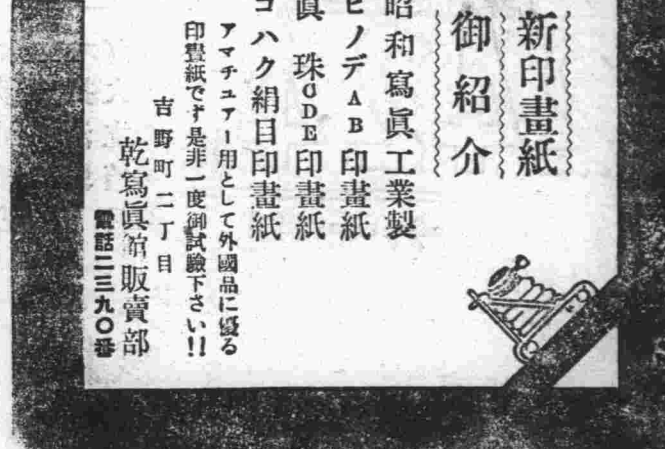 新印畫紙
御紹介
昭和寫眞工業製
ヒノデAB印畫紙
眞珠CDE印畫紙
コハク絹目印畫紙
アマチュアー用として外國品に優る
印畫紙です是非一度御試驗下さい!!
吉野町二丁目
乾寫眞舘販賣部
電話二三九〇番